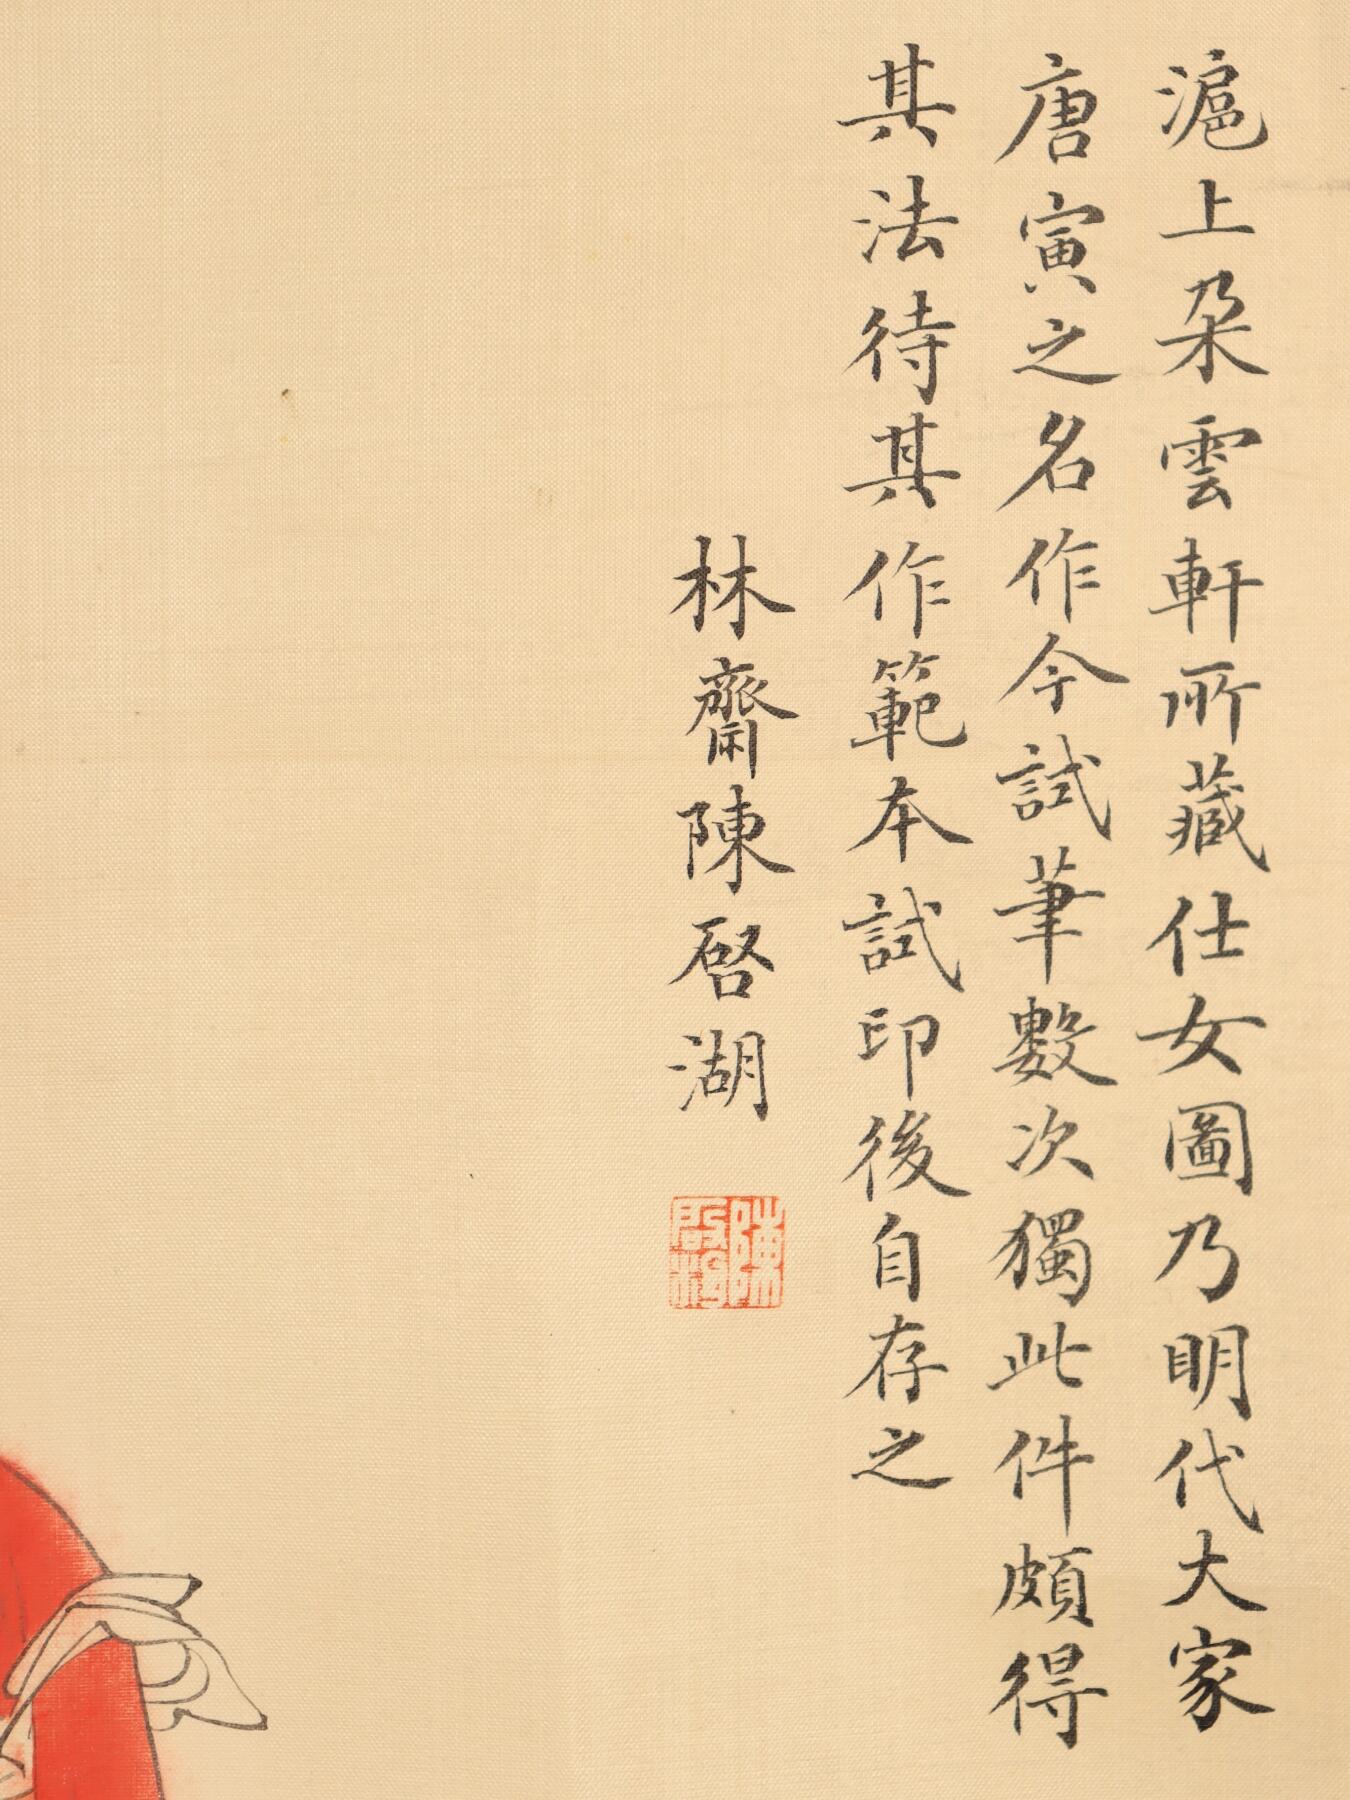 滬上朵雲軒所藏仕女圖乃明代大家
唐寅之名作今試筆數次獨此件頗得
其法待其作範本試印後自存之
林齋陳啓湖